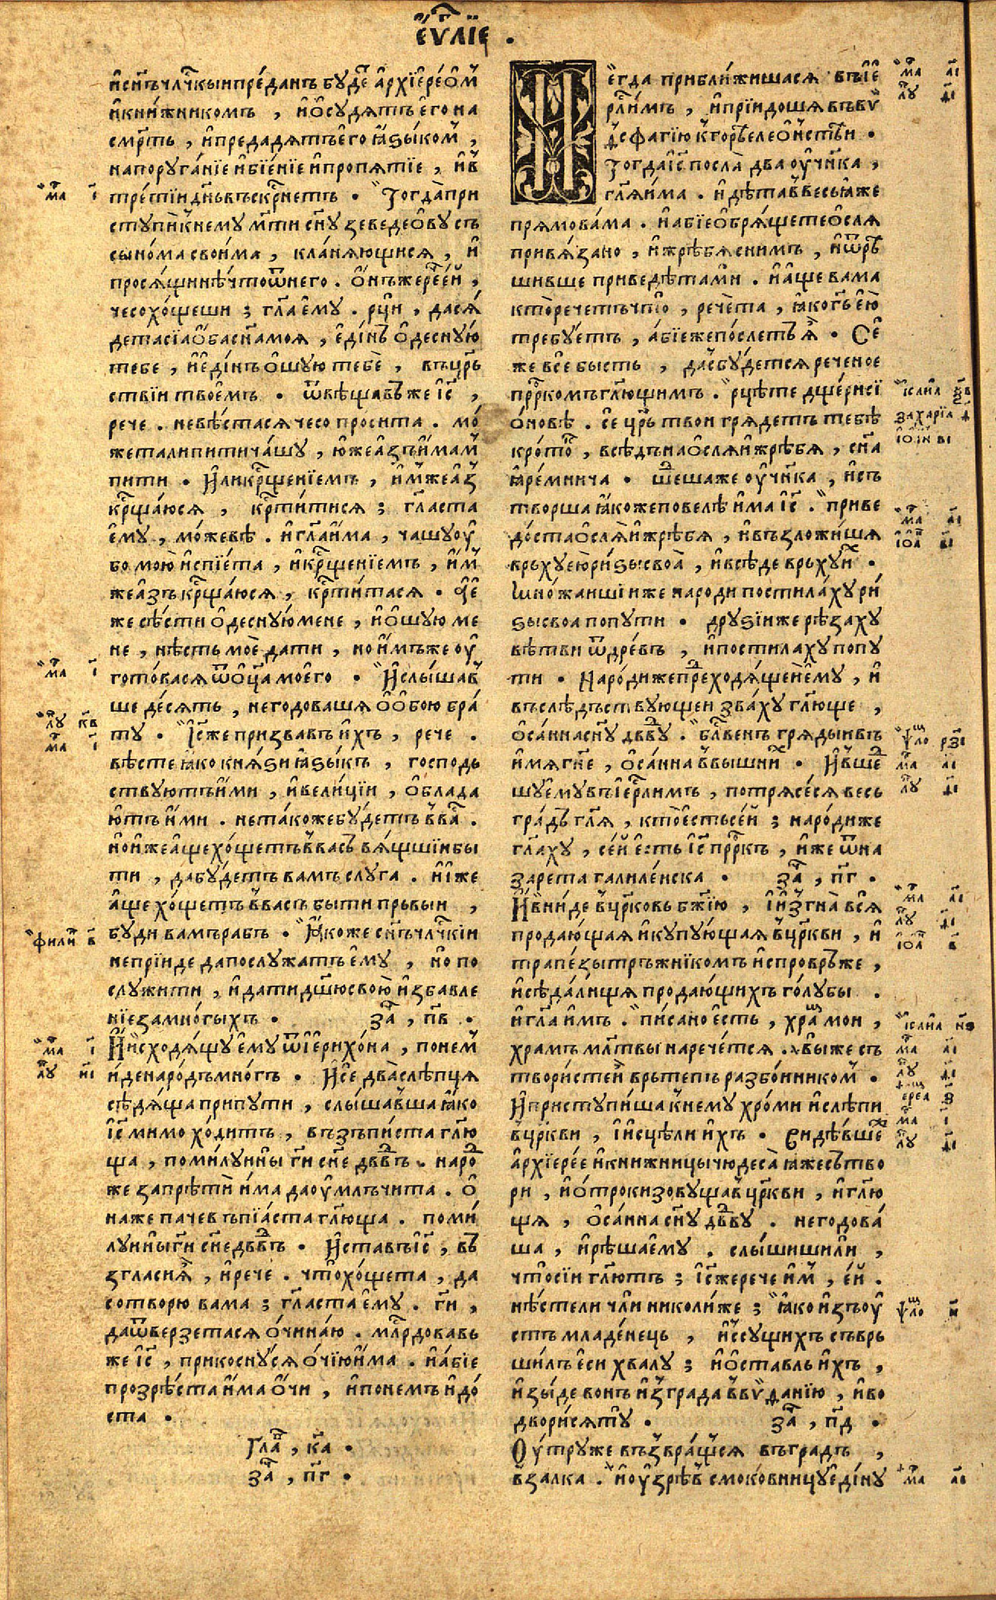 є҆ѵⷢ҇лїе .
и҆сн҃ъчл҃чкыипре́данъ бу́деⷮ а҆рхїере́ѡⷨ
и҆кни́жникомъ , и҆ѻ҆су́дѧтъ є҆го на
смр҃ть , и҆предадѧ́тъ є҆го ꙗ҆ꙁы́комⷨ ,
напоруга́нїе и҆бїе́нїе и҆пропѧ́тїе , и҆в̾
тре́тїи дн҃ь въскрⷭ҇нетъ . Тогда̀ при
ступѝ к̾нему мт҃и сн҃у зеведеѡ҆ву съ
сы́нома свои́ма , кла́нѧющисѧ , и҆
просѧ́щи нѣ́что ѿнего . ѻ҆́нъ же рече́ е҆́й ,
чесо хо́щеши ; гл҃а є҆му . рци̾ , да сѧ́
дета сїа ѻ҆́ба сн҃а моѧ , є҆ди́нъ ѻ҆десну́ю
тебе , и҆ є҆ди́нъ ѻ҆шу́ю тебѐ , въ црⷭ҇
ствїи твое́мъ . ѿвѣща́въ же і҆с҃ ,
рече . невѣ́стасѧ чесо просита . мо́
жета ли пити ча́шу , ю҆́же а҆́зъ и҆́маⷨ
пити . И҆ли крⷳ҇щенїемъ , и҆́мже а҆́з
крⷳ҇ща́юсѧ , крⷭ҇ти́тисѧ ; гл҃аста
є҆му , мо́жевѣ . и҆ гл҃а и҆ма , чашу оу҆
бо мою̀ и҆спїе́та , и҆крⷳ҇щенїемъ , и҆́м
же а҆́зъ крⷳ҇ща́юсѧ , крⷭ҇ти́тасѧ . Є҆́
же сѣ́сти ѻ҆десну́ю мене , и҆ѻ҆шу́ю ме
не , нѣ́сть моѐ дати , но и҆́мъже оу҆
гото́васѧ ѿ ѻ҆ц҃а моего̀ . И҆ слы́шав
ше де́сѧть , негодоваша ѻ҆ ѻ҆бою бра́
ту . І҆с҃ же призва́въ и҆́хъ , рече .
вѣ́сте ꙗ҆ко кнѧ́ѕи ꙗ҆ꙁы́къ , господь
ствуютъ и҆́ми , и҆вели́цїи , ѻ҆блада
ютъ и҆́ми . не та́коже бу́детъ в̾ваⷭ҇ .
но и҆́же а҆́ще хо́щетъ в̾ва́съ вѧ́щшїи бы
ти , да бу́детъ вамъ слуга . и҆ и҆́же
а҆́ще хо́щетъ в̾васъ быти пръвыи ,
буди вамъ ра́бъ . Ꙗ҆́коже сн҃ъ чл҃чкїи
не прїиде да послу́жатъ є҆му , но по
служити , и҆ дати дш҃ю свою̀ и҆збавле
нїе за мно́гыхъ . заⷱ҇ , п҃в .
И҆ и҆сходѧ́щу є҆му ѿ і҆ерихо́на , по неⷨ
и҆́де наро́дъ мно́гъ . И҆ се́ два̀ слѣпцѧ
сѣдѧ́ща при пути , слы́шавша ꙗ҆ко
і҆с҃ мимо хо́дитъ , възъпи́ста гл҃ю
ща , поми́луи ны гⷭ҇и сн҃е дв҃довъ . наро́ⷣ
же запрѣти́ и҆ма да оу҆млъчита . ѻ҆́
на же паче въпїѧ́ста гл҃юща . поми́
луи ны гⷭ҇и сн҃е дв҃довъ . И҆ ставъ і҆с҃ , въ
зглаⷭ҇ и҆ѧ , и҆ рече . что̀ хо́щета , да
сотворю вама ; гл҃аста є҆му . гⷭ҇и ,
да ѿверзетасѧ ѻ҆чи наю . млⷭ҇рдовавъ
же і҆с҃ , прикосну́сѧ ѻ҆чїю и҆ма . и҆ а҆́бїе
прозрѣ́ста и҆ма ѻ҆́чи , и҆ по немъ и҆до́
ста .
Глаⷡ҇ , к҃а .
заⷱ҇ , п҃г .
И҆ є҆гда приближишасѧ въ і҆е
рⷭ҇лимъ , и҆прїидоша въ ви҆ѳ
сфагїю к̾ горѣ̀ єлеѡ́нстѣи .
Тогда і҆с҃ посла̀ два оу҆чн҃ка ,
гл҃ѧ и҆́ма . и҆дѣта в̾ весь ꙗ҆же
прѧмо ва́ма . и҆ а҆бїе ѻ҆брѧ́щете ѻ҆слѧ
привѧ́зано , и҆ жрѣ́бѧ с ни́мъ , и҆ ѿрѣ
шивше приведѣ́та ми . и҆ а҆́ще вама
кто̀ рече́тъ что̀ , рече́та , ꙗ҆ко гⷭ҇ь є҆ю̀
тре́буетъ , а҆́бїе же по́слетъ ѧ҆̀ . Се́
же всѐ бысть , да сбу́детсѧ реченое
прⷪ҇ркомъ гл҃ющимъ . рцѣте дще́ри сїѻ҆́новѣ . се црⷭ҇ь твои грѧдетъ тебѣ
кро́токъ , всѣ́дъ на ѻ҆слѧ и҆ жрѣбѧ , сн҃а
ꙗ҆ре́мнича . ше́дша же оу҆чн҃ка , и҆ съ
творша ꙗ҆коже повелѣ̀ и҆ма і҆с҃ . приве
до́ста ѻ҆слѧ̀ и҆ жрѣбѧ , и҆ възложи́ша
връху є҆ю̀ ри́ѕы своѧ̀ , и҆ всѣ́де връху и҆́х .
Мно́жаишїи же народи постила́ху ри́
ѕы своѧ по пути . дру́ѕїи же рѣ́заху
вѣтви ѿ дре́въ , и҆постилаху по пу
ти . Наро́ди же преⷣходѧ́щеи є҆му , и҆
въслѣ́дъствующеи зва́ху гл҃юще ,
ѻ҆са́нна сн҃у дв҃ду . блⷭ҇ве́нъ грѧды́и въ
и҆мѧ гн҃е , ѻ҆са́нна в̾ вышниⷯ . И҆ в̾ше́ⷣ
шу є҆му въ і҆ерⷭ҇ли́мъ , потрѧсе́сѧ весь
гра́дъ гл҃ѧ , кто̀ є҆́сть се́й ; наро́ди же
гл҃аху , се́й є҆́сть і҆с҃ прⷪ҇ркъ , и҆́же ѿ на
зарета галиле́иска . заⷱ҇ , п҃г .
И҆ вни́де в̾ цр҃ковь бж҃їю , и҆ и҆з̾гна̀ всѧ̀
продаю́щаѧ и҆ купу́ющаѧ в̾ цр҃кви , и҆
трапе́зы тръжнїкомъ и҆спровръже ,
и҆ сѣда́лища продаю́щихъ го́лубы .
и҆ гл҃а и҆мъ . пи́сано є҆сть , хра́мъ мои ,
храмъ мл҃твы нарече́тсѧ . вы́ же съ
твори́сте и҆ врьтепъ разбо́иникомⷨ .
И҆ приступи́ша к̾ нему хро́ми и҆ слѣпи
в̾ цр҃кви , и҆ и҆сцѣли и҆́хъ . Видѣ́вшеⷤ
а҆рхїере́е и҆ книжницы чюдеса̀ ꙗ҆же сътво
ри , и҆ ѻ҆троки зовуща в̾ цр҃кви , и҆ гл҃ю
ща , ѻ҆са́нна сн҃у дв҃ду . негодова́
ша , и҆ рѣ́ша є҆му . слы́шиши ли ,
что̀ сїи гл҃ютъ ; і҆с҃ же рече и҆́мъ , є҆́й .
нѣ́сте ли чли николи́же ; ꙗ҆́ко и҆зъ оу҆
стъ младе́нець , и҆ ссу́щихъ съвръ
ши́лъ є҆си хвалу ; и҆ ѻ҆ста́вль и҆́хъ ,
и҆зы́де вонъ и҆з̾ града в̾ ви҆ѳа́нїю , и҆ во
двори́сѧ ту̀ . заⷱ҇ , п҃д .
Оу҆тру же възвра́щьсѧ въ градъ ,
в̾залка . и҆ оу҆зрѣ́въ смоко́вницу є҆ди́ну